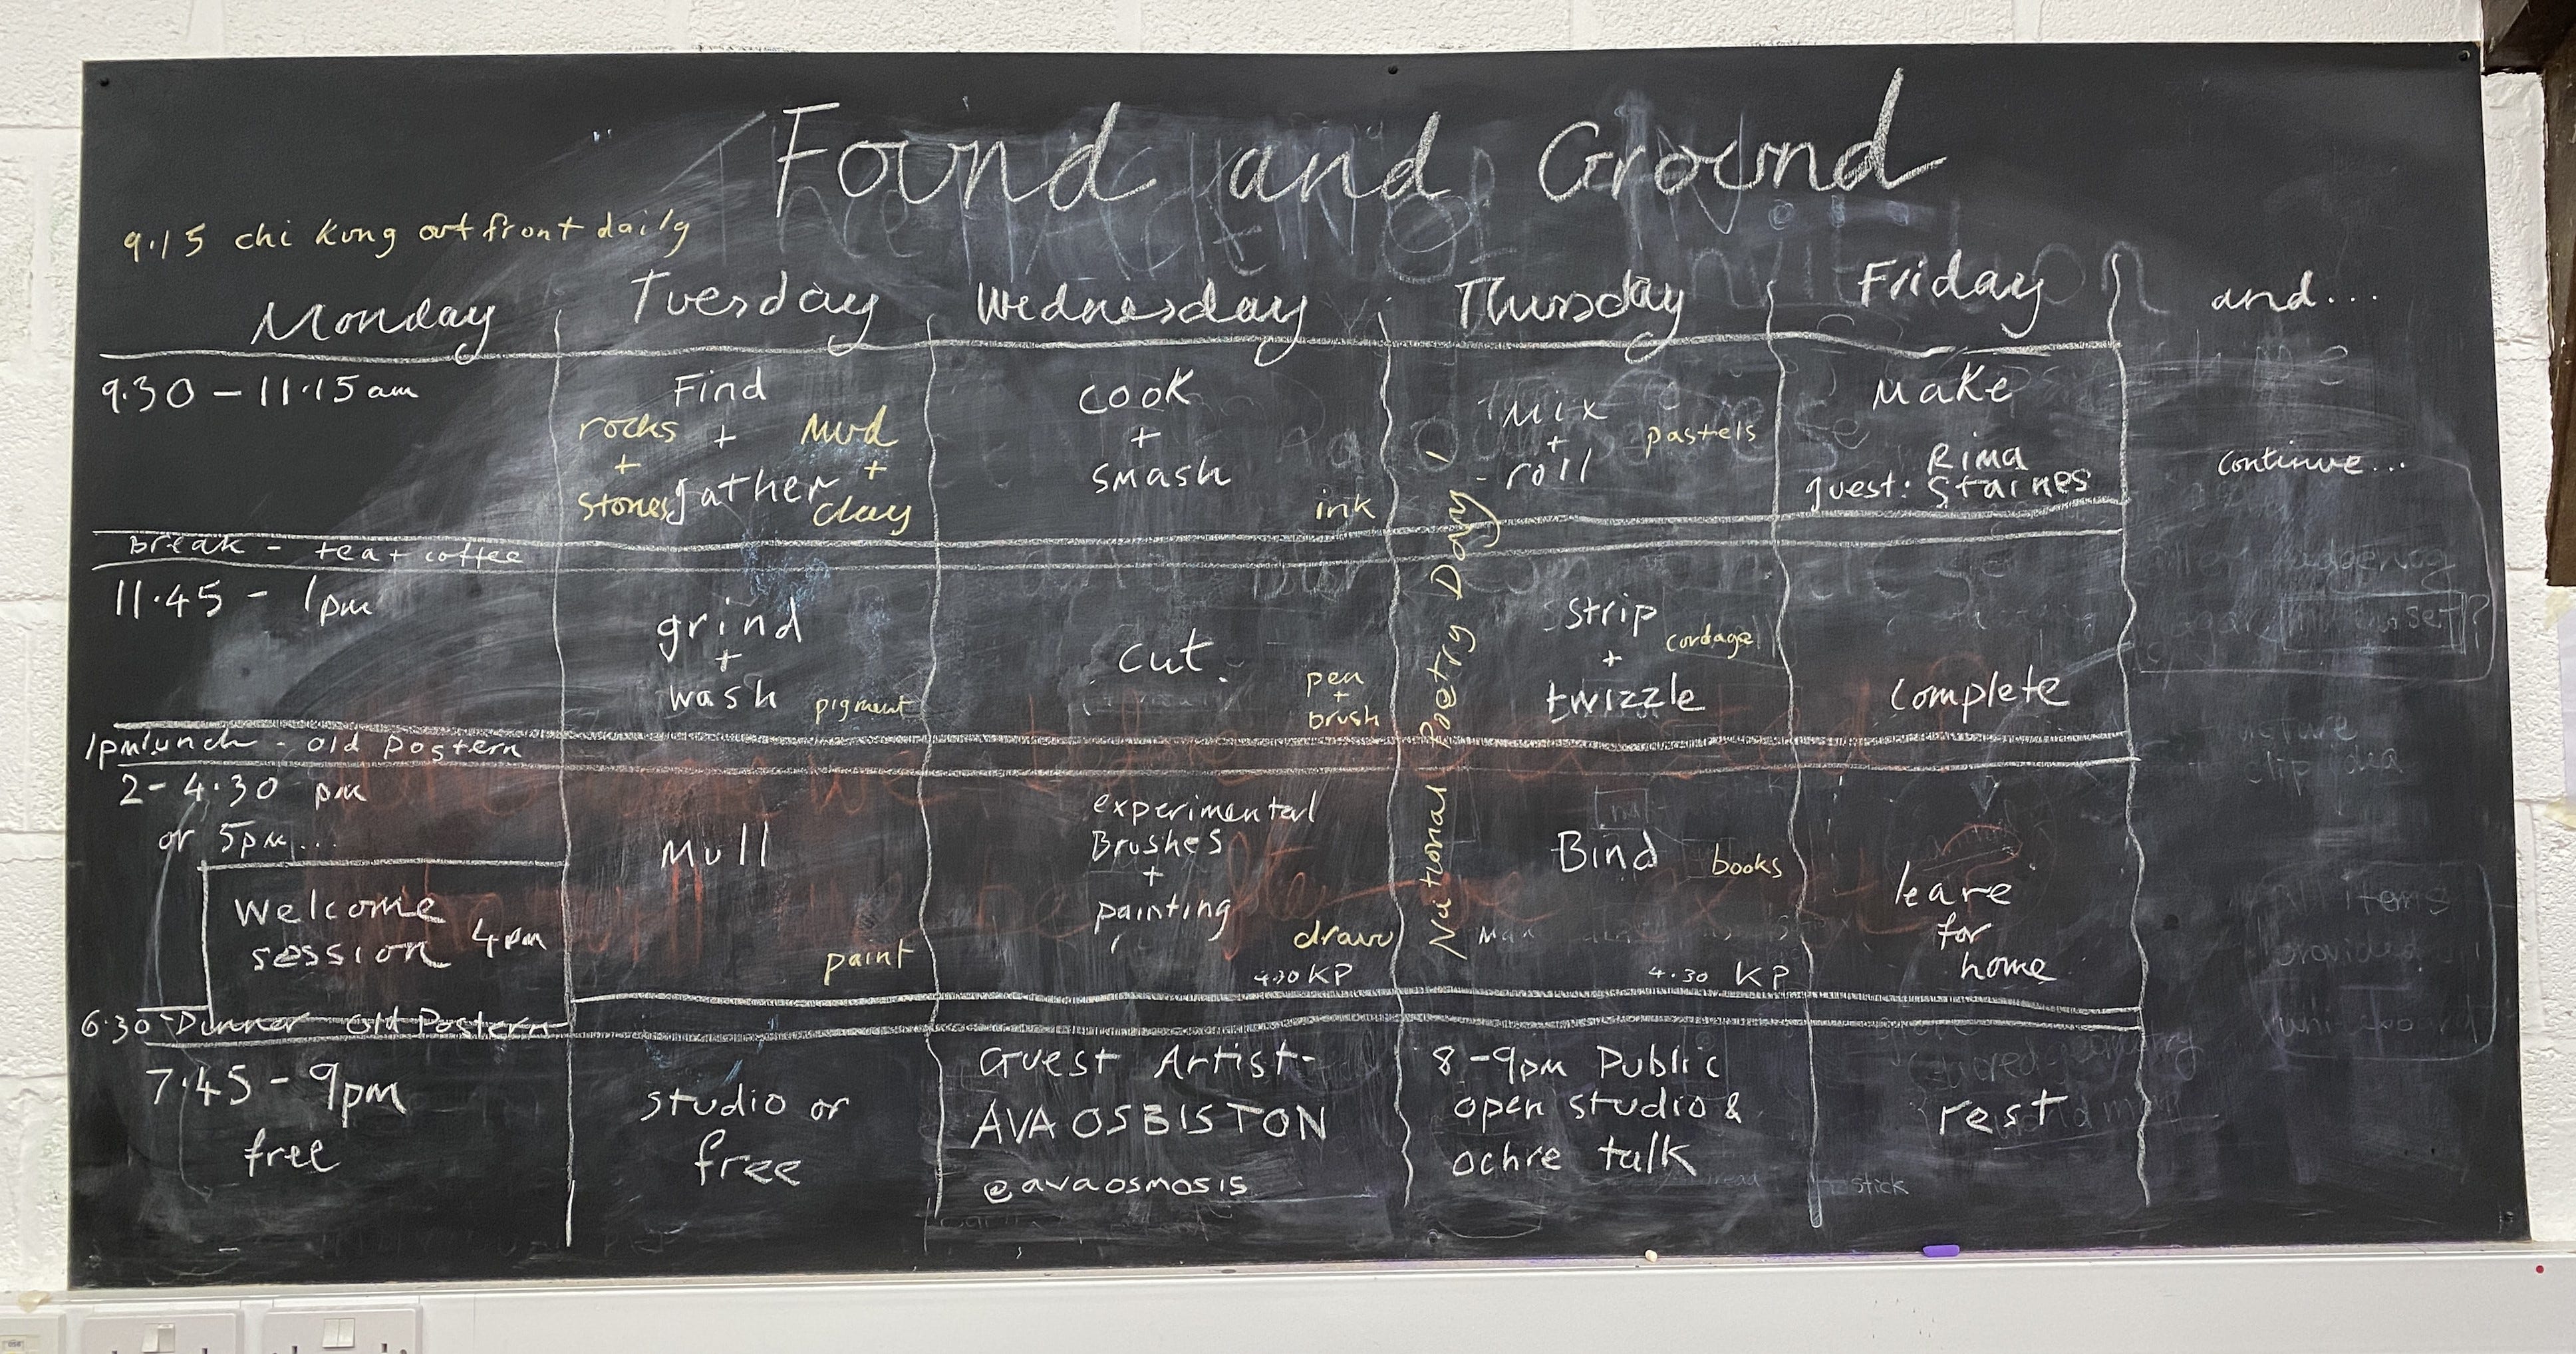 Found and Ground
9.15 chi kung out front daily
Monday
Tuesday
Wednesday
Thursday
Friday
and...
9.30 - 11.15 am
Find
+
gather
rocks
+
stones
Mud
+
clay
cook
+
smash
ink
Mix
+
roll
pastels
Make
guest: Rima
Staines
continue...
Break - tea + coffee
11.45 - 1pm
grind
+
wash
pigment
cut
pen
+
brush
National Poetry Day!
strip
+
twizzle
cordage
complete
1pm lunch - old postern
2 - 4.30 pm
or 5pm...
Welcome
session 4pm
Mull
paint
experimental
Brushes
+
painting
draw
4.30 KP
Bind
books
4.30 KP
leave
for
home
6.30 Dinner Old Postern
7.45 - 9pm
free
studio or
free
Guest Artist-
AVA OSBISTON
@avaosmosis
8-9pm Public
open studio &
ochre talk
rest
stick